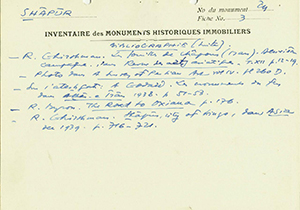 SHĀPŪR
No du monument : 24
Fiche No : 3
INVENTAIRE DES MONUMENTS HISTORIQUES IMMOBILIERS
BIBLIOGRAPHIE (Suite)
— R. Ghirshman. Les fouilles de Châpour (Iran). Deuxième
campagne, dans Revue des arts asiatiques, T. XII p. 12-19.
— Photo dans A Survey of Persian Art vol IV. pl. 260 D.
A. Godard. Les monuments du
dans 1938. p. 51-53.
— R. Byron. The Road to Oxiana p. 176.
— R. Ghirshman. Shāpur, city of Kings, dans Asia
1939. p. 716-720.